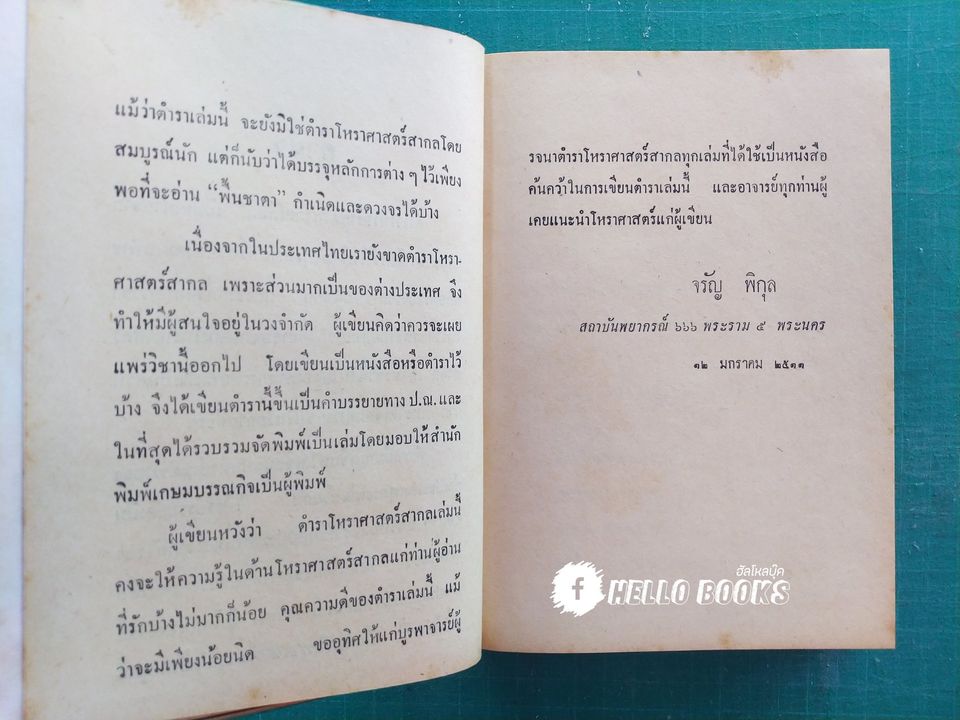 แม้ว่าตำราเล่มนี้ จะยังมิใช่ตำราโหราศาสตร์สากลโดย
สมบูรณ์นัก แต่ก็นับว่าได้บรรจุหลักการต่าง ๆ ไว้เพียง
พอที่จะอ่าน “พื้นชาตา” กำเนิดและดวงจรได้บ้าง
เนื่องจากในประเทศไทยเรายังขาดตำราโหรา-
ศาสตร์สากล เพราะส่วนมากเป็นของต่างประเทศ จึง
ทำให้มีผู้สนใจอยู่ในวงจำกัด ผู้เขียนคิดว่าควรจะเผย
แพร่วิชานี้ออกไป โดยเขียนเป็นหนังสือหรือตำราไว้
บ้าง จึงได้เขียนตำรานี้ขึ้นเป็นคำบรรยายทาง ป.ณ. และ
ในที่สุดได้รวบรวมจัดพิมพ์เป็นเล่มโดยมอบให้สำนัก
พิมพ์เกษมบรรณกิจเป็นผู้พิมพ์
ผู้เขียนหวังว่า ตำราโหราศาสตร์สากลเล่มนี้
คงจะให้ความรู้ในด้านโหราศาสตร์สากลแก่ท่านผู้อ่าน
ที่รักบ้างไม่มากก็น้อย คุณความดีของตำราเล่มนี้ แม้
ว่าจะมีเพียงน้อยนิด ขออุทิศให้แก่บูรพาจารย์ผู้
รจนาตำราโหราศาสตร์สากลทุกเล่มที่ได้ใช้เป็นหนังสือ
ค้นคว้าในการเขียนตำราเล่มนี้ และอาจารย์ทุกท่านผู้
เคยแนะนำโหราศาสตร์แก่ผู้เขียน
จรัญ พิกุล
สถาบันพยากรณ์ ๖๖๖ พระราม ๕ พระนคร
๑๒ มกราคม ๒๕๑๑
ฮัลโหลบุ๊ค
f HELLO BOOKS